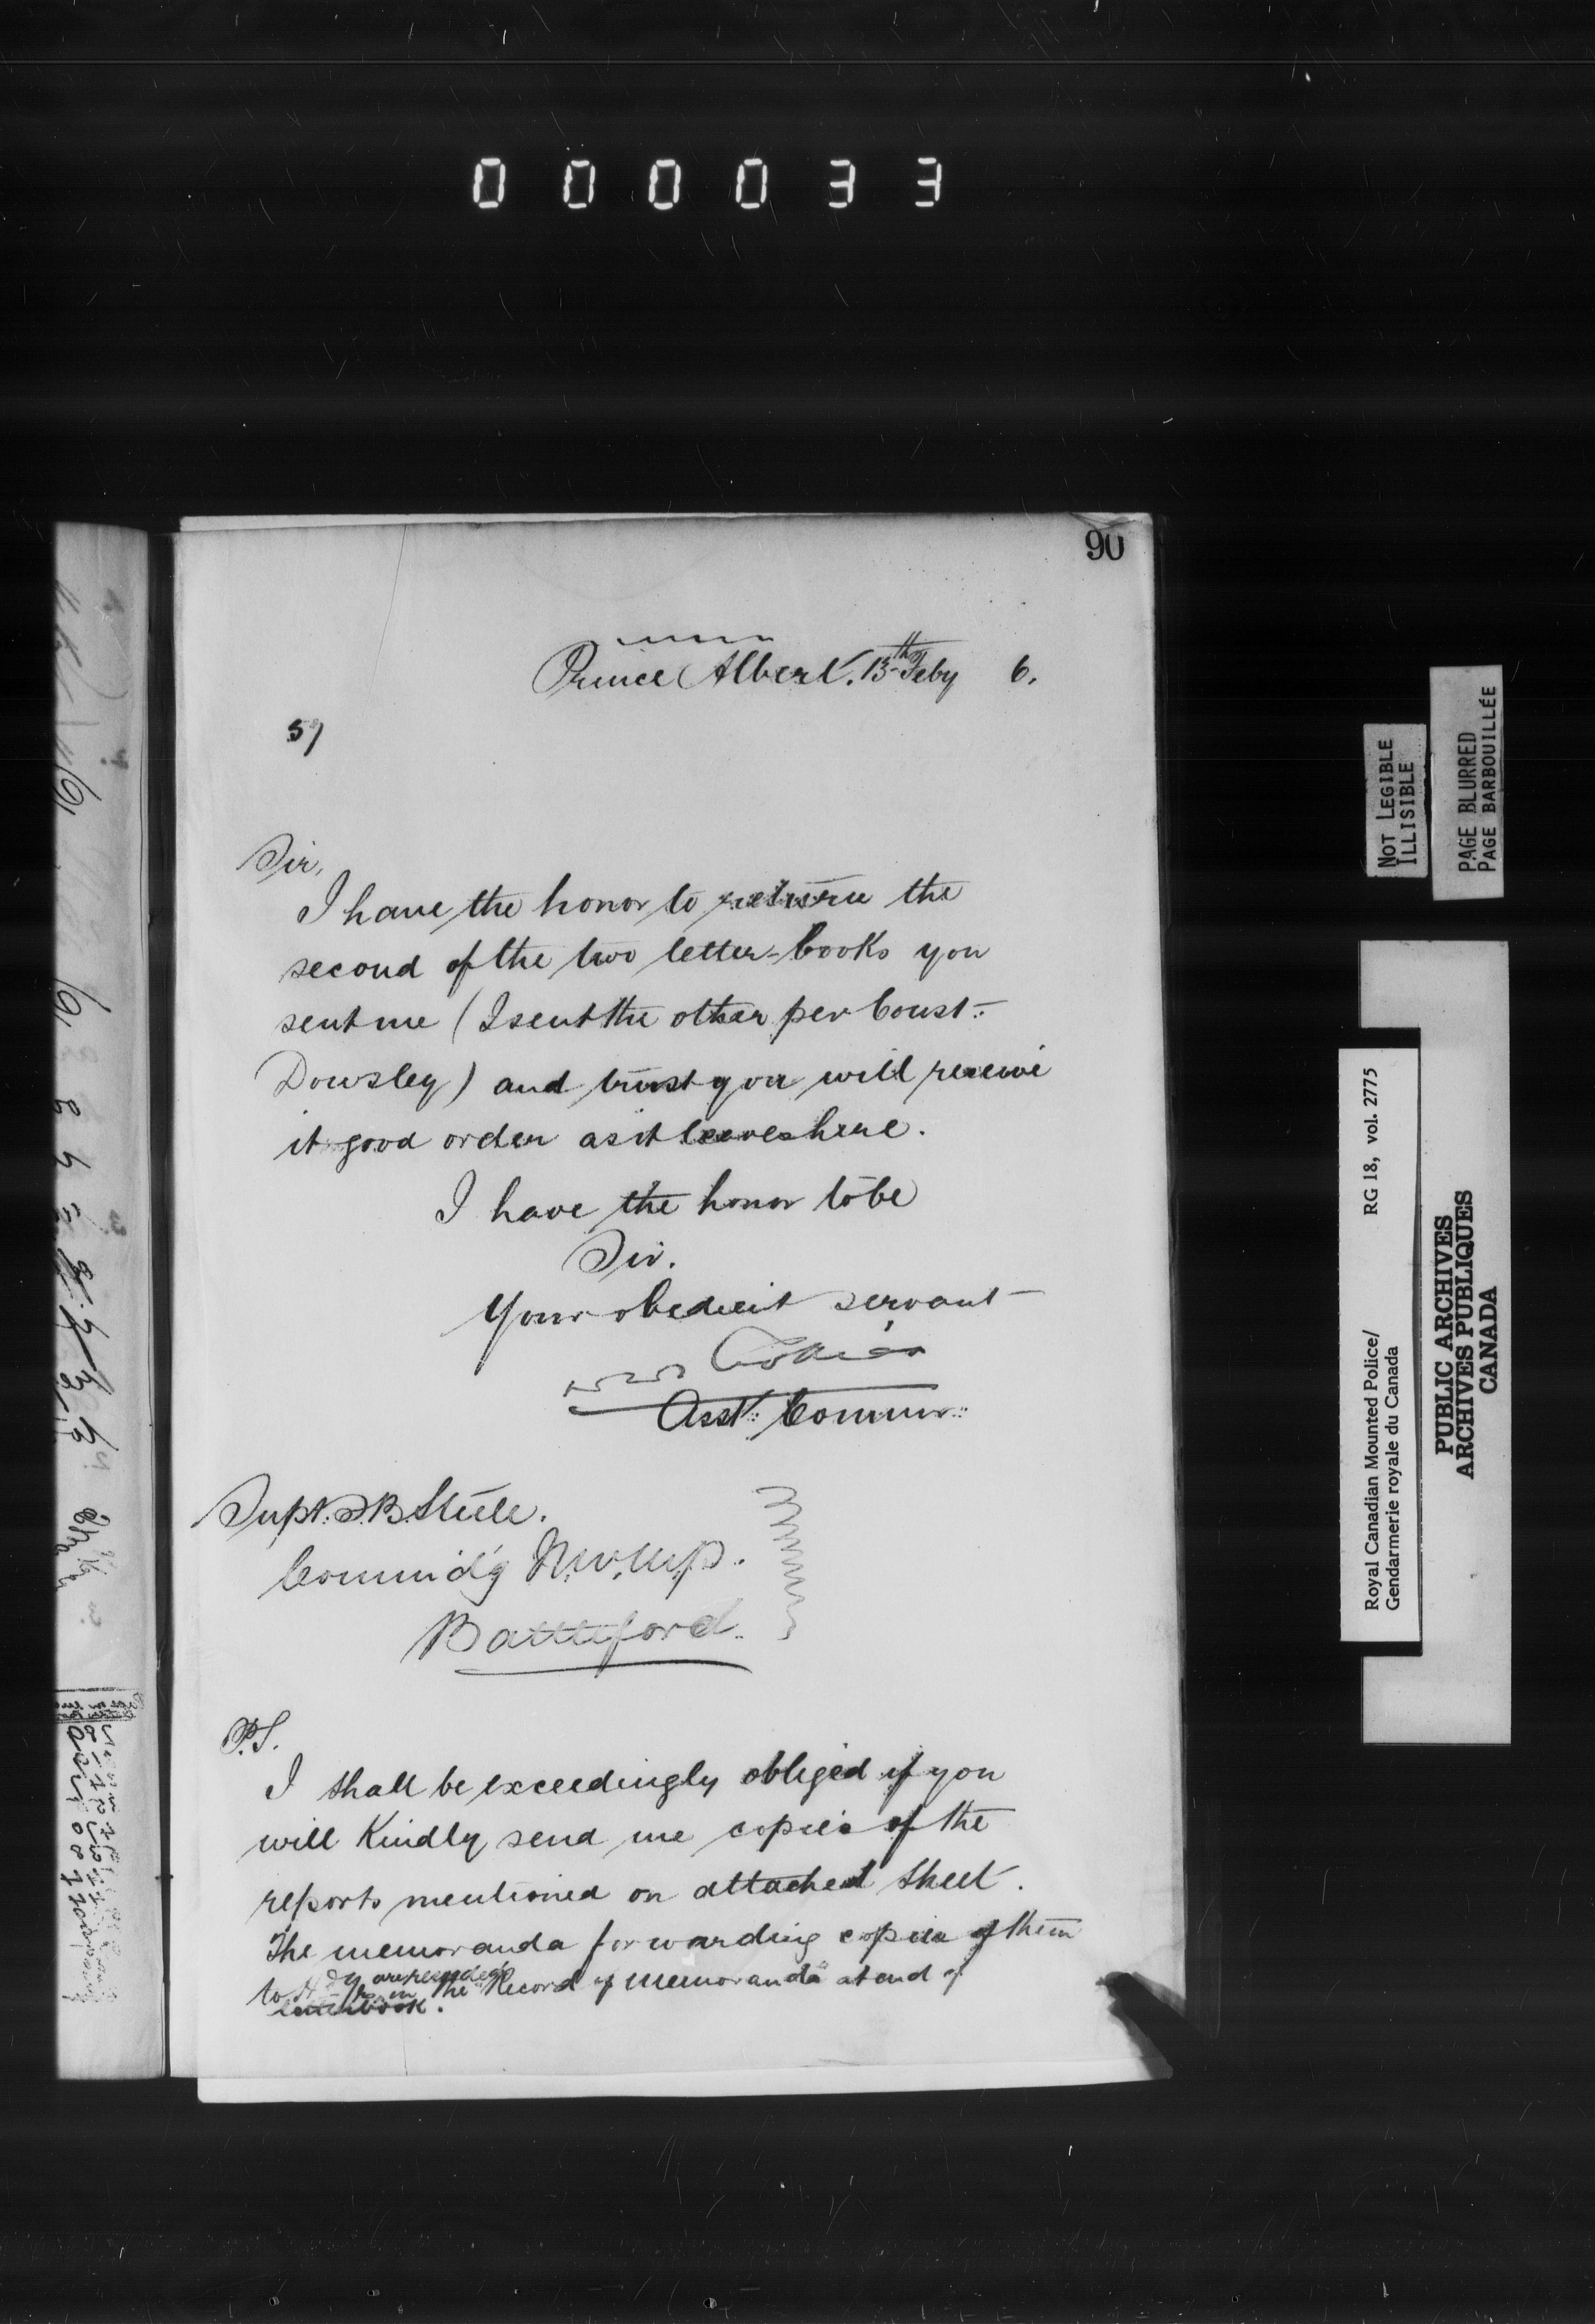 000033
90
Prince Albert. 13th Feby 6.
57
Sir,
I have the honor to return the
second of the two letter-books you
sent me (I sent the other per Const.
Dowsley) and trust you will receive
it good order as it leaves here.
I have the honor to be
Sir.
Your obedient servant
Asst. Commr.
Supt. S.B. Steele.
Commd'g N.W.M.P.
Battleford.
P.S.
I shall be exceedingly obliged if you
will Kindly send me copies of the
reports mentioned on attached sheet.
The memoranda forwarding copies of them
to are in the "Record of Memoranda" at end of
letterbook.
NOT LEGIBLE
ILLISIBLE
PAGE BLURRED
PAGE BARBOUILLÉE
Royal Canadian Mounted Police/ RG 18, vol. 2775
Gendarmerie royale du Canada
PUBLIC ARCHIVES
ARCHIVES PUBLIQUES
CANADA